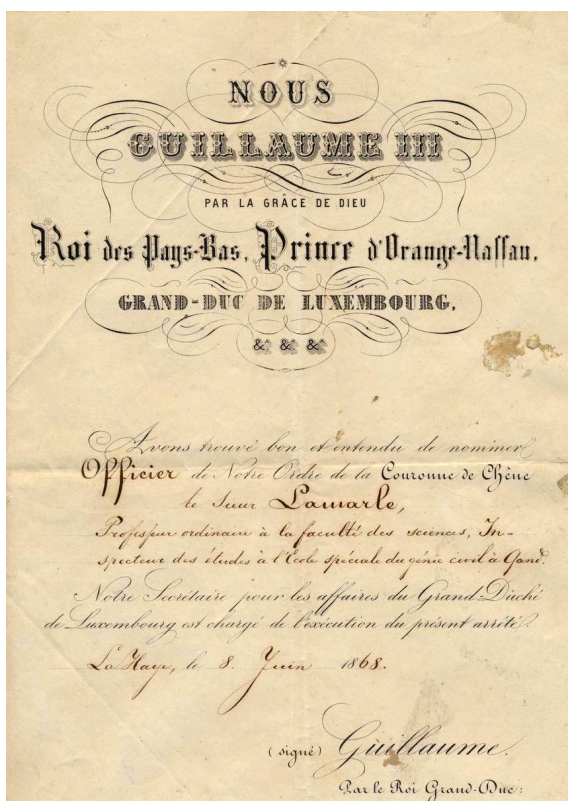 NOUS
GUILLAUME III
PAR LA GRÂCE DE DIEU
Roi des Pays-Bas, Prince d'Orange-Nassau,
GRAND-DUC DE LUXEMBOURG,
& & &
Avons trouvé bon et entendu de nommer
Officier de Notre Ordre de la Couronne de Chêne
le Sieur Lamarle,
Professeur ordinaire à la faculté des sciences, In-
specteur des études à l'Ecole spéciale du génie civil à Gand.
Notre Secrétaire pour les affaires du Grand-Duché
de Luxembourg est chargé de l'exécution du présent arrêté.
La Haye, le 8 Juin 1868.
(signé) Guillaume.
Par le Roi Grand-Duc: